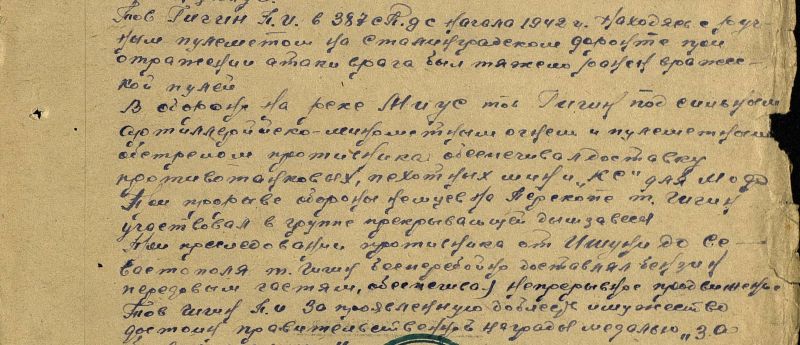 Тов Гигин П.И. в 387 с.п. дс начала 1942 г. Находясь с руч-
ным пулеметом на Сталинградском фронте при
отражении атаки врага был тяжело ранен вражес-
кой пулей
В обороне на реке Миус тов Гигин под сильным
артиллерийско-минометным огнем и пулеметным
обстрелом противника обеспечивал доставку
противотанковых, пехотных мин и "КС" для
При прорыве обороны немцев на Перекопе т. Гигин
участвовал в группе прекрывающей дымзавеси
При преследовании противника от Ишуни до Се-
вастополя т. Гигин бесперебойно доставлял бензин
передовым частям, обеспечивая непрерывное продвижение
Тов Гигин П.И За проявленную доблесть и мужество
достоин правительственной награды медалью "За